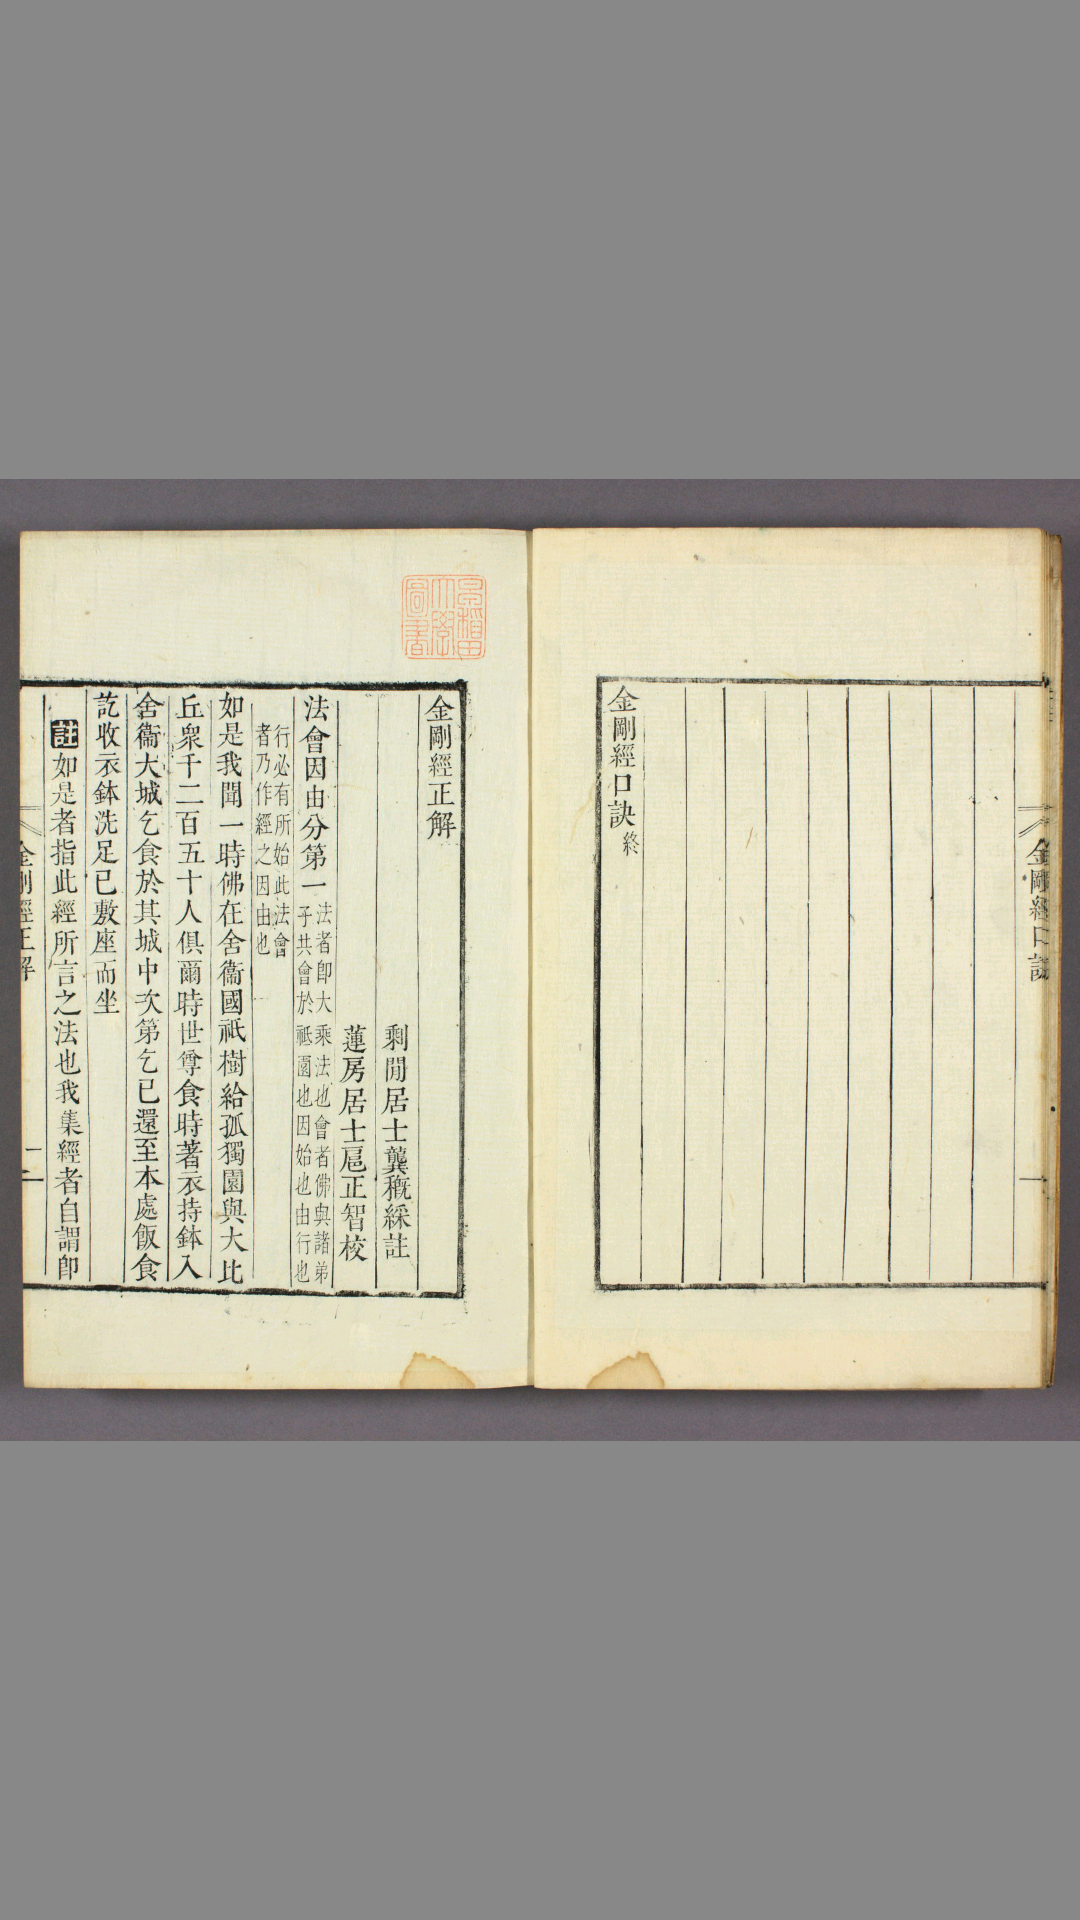 金剛經口訣
金剛經口訣終
早稻田
大學
圖書
金剛經正解
剩閒居士龔穊綵註
蓮房居士扈正智校
法會因由分第一
法者卽大乘法也會者佛與諸弟
子共會於祗園也因始也由行也
行必有所始此法會
者乃作經之因由也
如是我聞一時佛在舍衞國祇樹給孤獨園與大比
丘衆千二百五十人俱爾時世尊食時著衣持鉢入
舍衞大城乞食於其城中次第乞已還至本處飯食
訖收衣鉢洗足已敷座而坐
註如是者指此經所言之法也我集經者自謂卽
金剛經正解